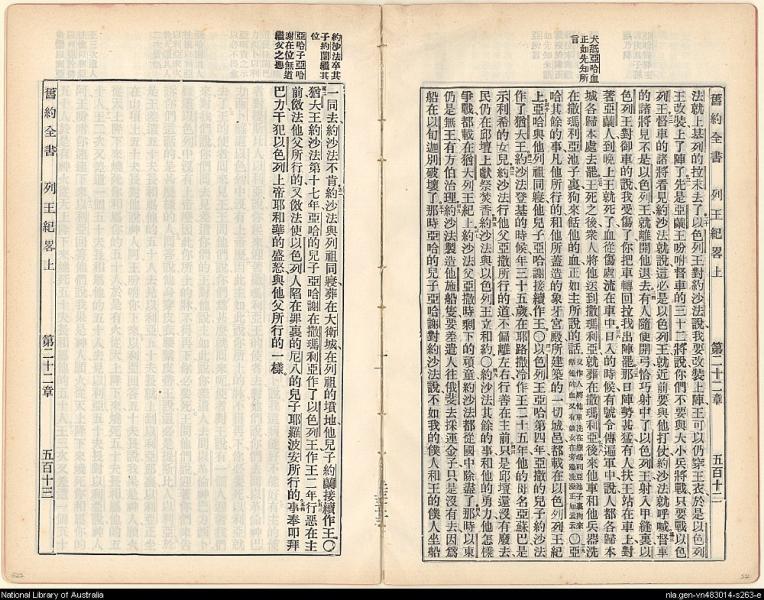 犬舐亞哈血
正如先知所
言
舊約全書 列王紀畧上 第二十二章 五百十二
法就上基列的拉末去了以色列王對約沙法說我要改裝上陣王可以仍穿王衣於是以色列
王改裝上了陣了先是亞蘭王吩咐督車的三十二將說你們不要與大小兵將戰只要戰以色
列王督車的諸將看見約沙法就說這必是以色列王就近前要與他打仗約沙法就呼喊督車
的諸將見不是以色列王就離開他退去有人隨便開弓恰巧射中了以色列王射入甲縫裏以
色列王對御車的說我受傷了你把車轉回拉我出陣罷那日陣勢甚猛有人扶王站在車上對
著亞蘭人到晚上王就死了血從傷處流在車中日入的時候有號令傳遍軍中說人都各歸本
城各歸本處去罷王死之後衆人將他送到撒瑪利亞就葬在撒瑪利亞後來他車和他兵器洗
在撒瑪利亞池子裏狗來餂他的血正如主所說的話〇亞
哈其餘的事凡他所行的和他所蓋造的象牙宮殿所建築的一切城邑都載在以色列列王紀
上亞哈與他列祖同寢他兒子亞哈謝接續作王〇以色列王亞哈第四年亞撒的兒子約沙法
作了猶大王約沙法登基的時候年三十五歲在耶路撒冷作王二十五年他的母名亞蘇巴是
示利希的女兒約沙法行他父亞撒所行的道不偏離左右行善在主前只是邱壇還沒有廢去
民仍在邱壇上獻祭焚香約沙法與以色列王立和約〇約沙法其餘的事和他的勇力他怎樣
爭戰都載在猶大列王紀上約沙法父亞撒時剩下的頑童約沙法都從國中除盡了那時以東
仍是無王有方伯治理約沙法製造他施船隻要差遣人往俄斐去採運金子只是沒有去因爲
船在以旬迦別破壞了那時亞哈的兒子亞哈謝對約沙法說不如我的僕人和王的僕人坐船
約沙法卒其
子約蘭繼其
位
亞哈子亞哈
謝在位無道
一同去約沙法不肯約沙法與列祖同寢葬在大衛城在列祖的墳地他兒子約蘭接續作王〇
猶大王約沙法第十七年亞哈的兒子亞哈謝在撒瑪利亞作了以色列王作王二年行惡在主
前傚法他父所行的又傚法使以色列人陷在罪裏的尼八的兒子耶羅波安所行的事奉叩拜
巴力干犯以色列上帝耶和華的盛怒與他父所行的一樣
舊約全書 列王紀畧上 第二十二章 五百十三
National Library of Australia
nla.gen-vn483014-s263-e